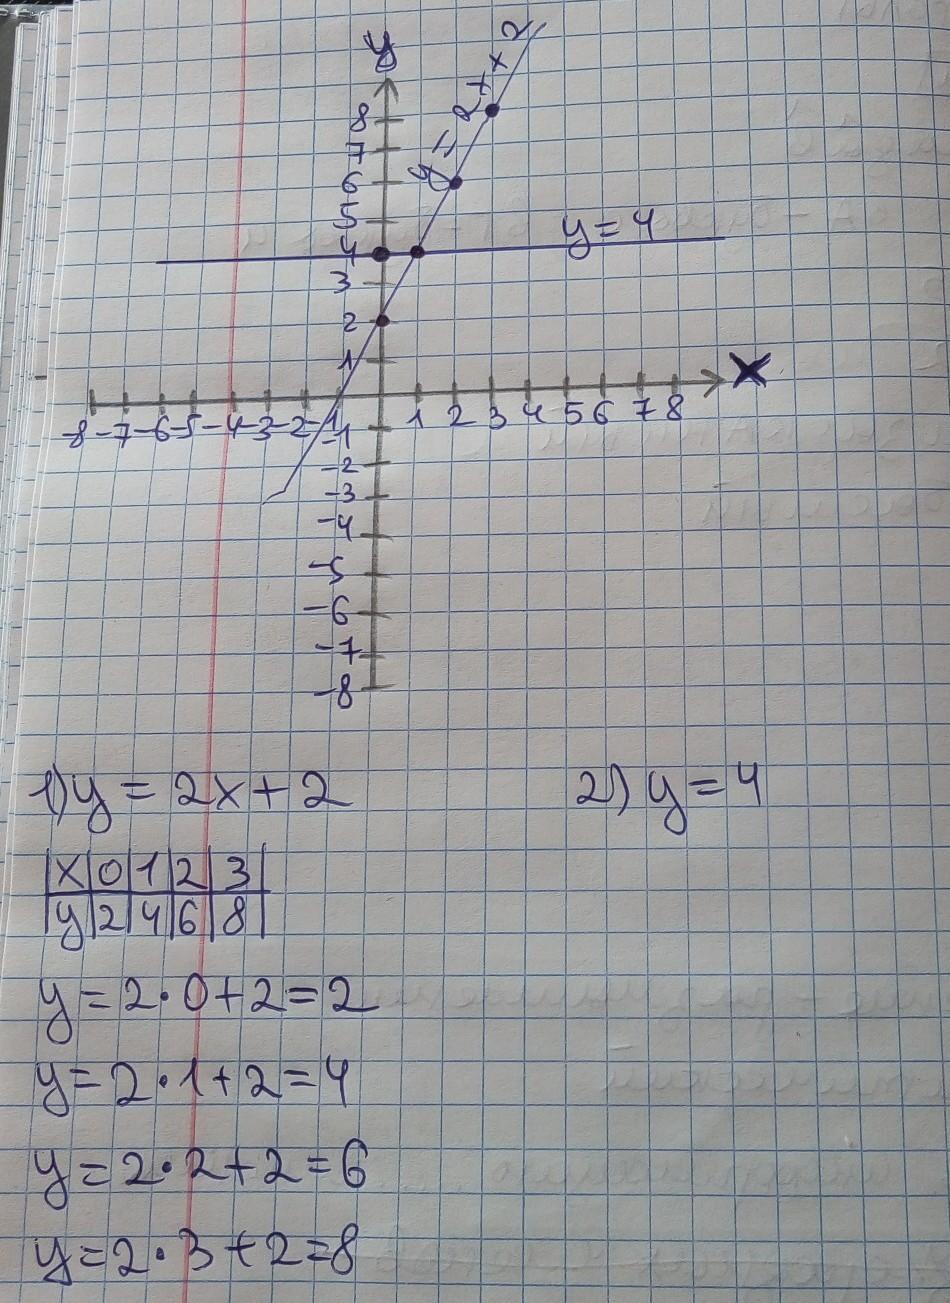 y
y = 2 + x 2
8
7
6
5
y = 4
4
3
2
1
x
-8 -7 -6 -5 -4 -3 -2 -1 1 2 3 4 5 6 7 8
-1
-2
-3
-4
-5
-6
-7
-8
1) y = 2x + 2
2) y = 4
x 0 1 2 3
y 2 4 6 8
y = 2 · 0 + 2 = 2
y = 2 · 1 + 2 = 4
y = 2 · 2 + 2 = 6
y = 2 · 3 + 2 = 8